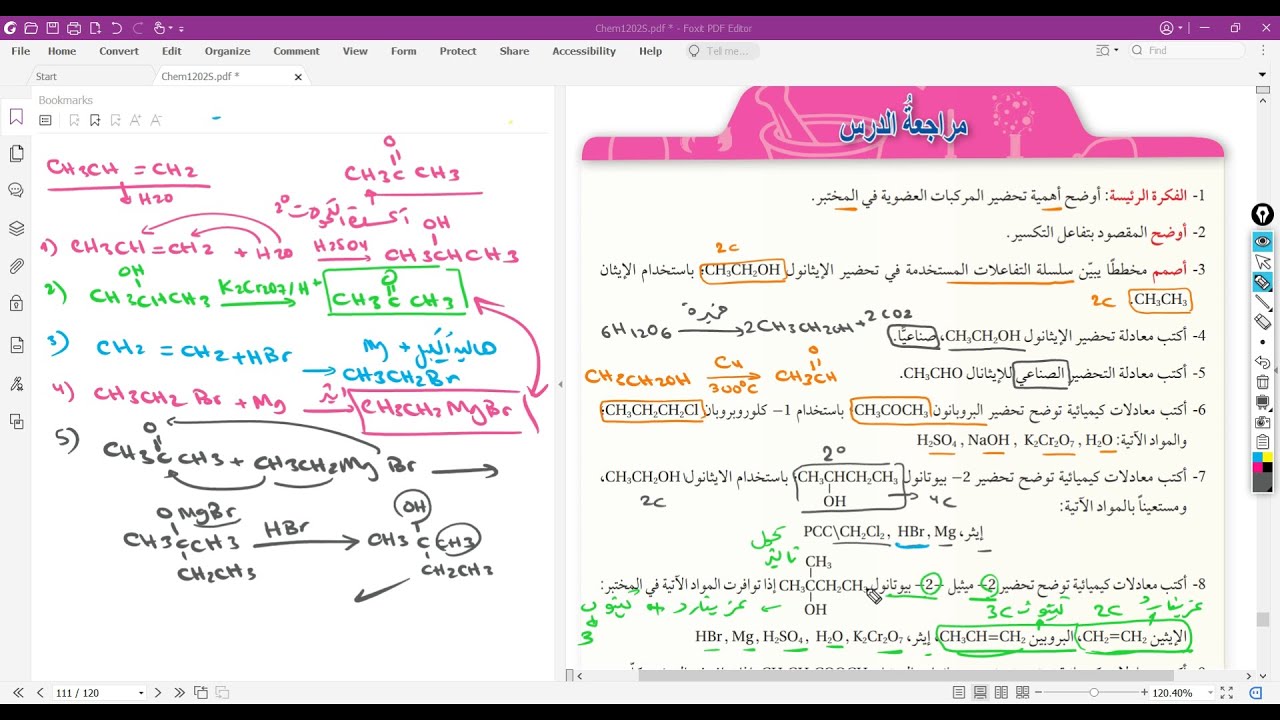 Chem1202S.pdf * - Foxit PDF Editor
File Home Convert Edit Organize Comment View Form Protect Share Accessibility Help Tell me... Find
Start Chem1202S.pdf *
Bookmarks
CH3CH = CH2
H2O
O
CH3C CH3
2°
OH
1) CH3CH = CH2 + H2O H2SO4 CH3CHCH3
OH
2) CH3CHCH3 K2Cr2O7/H+ O CH3C CH3
3) CH2 = CH2 + HBr
Mg +
CH3CH2Br
4) CH3CH2 Br + Mg إيثر CH3CH2MgBr
5) O
CH3C CH3 + CH3CH2Mg Br
OMgBr
CH3CCH3 HBr CH3 C CH3
OH
CH2CH3 CH2CH3
مراجعةُ الدرس
1- الفكرة الرئيسة: أوضح أهمية تحضير المركبات العضوية في المختبر.
2- أوضح المقصود بتفاعل التكسير.
2C
3- أصمم مخططًا يبيّن سلسلة التفاعلات المستخدمة في تحضير الإيثانول CH3CH2OH؛ باستخدام الإيثان
CH3CH3. 2C
6H12O6 خميرة 2CH3CH2OH + 2CO2
4- أكتب معادلة تحضير الإيثانول CH3CH2OH، صناعيًّا.
5- أكتب معادلة التحضير الصناعي للإيثانال CH3CHO.
CH3CH2OH Cu 300°C O CH3CH
6- أكتب معادلات كيميائية توضح تحضير البروبانون CH3COCH3 باستخدام 1- كلوروبروبان CH3CH2CH2Cl؛
والمواد الآتية: H2SO4 , NaOH , K2Cr2O7, H2O
2°
7- أكتب معادلات كيميائية توضح تحضير 2- بيوتانول CH3CHCH2CH3 باستخدام الايثانول CH3CH2OH،
OH 4C 2C
ومستعينًا بالمواد الآتية:
إيثر، PCC\CH2Cl2, HBr, Mg
كحول
CH3
8- أكتب معادلات كيميائية توضح تحضير 2- ميثيل -2- بيوتانول CH3CCH2CH3 إذا توافرت المواد الآتية في المختبر:
OH
3C 2C
3
الإيثين CH2=CH2، البروبين CH3CH=CH2، إيثر، HBr, Mg, H2SO4, H2O, K2Cr2O7
111 / 120
120.40%